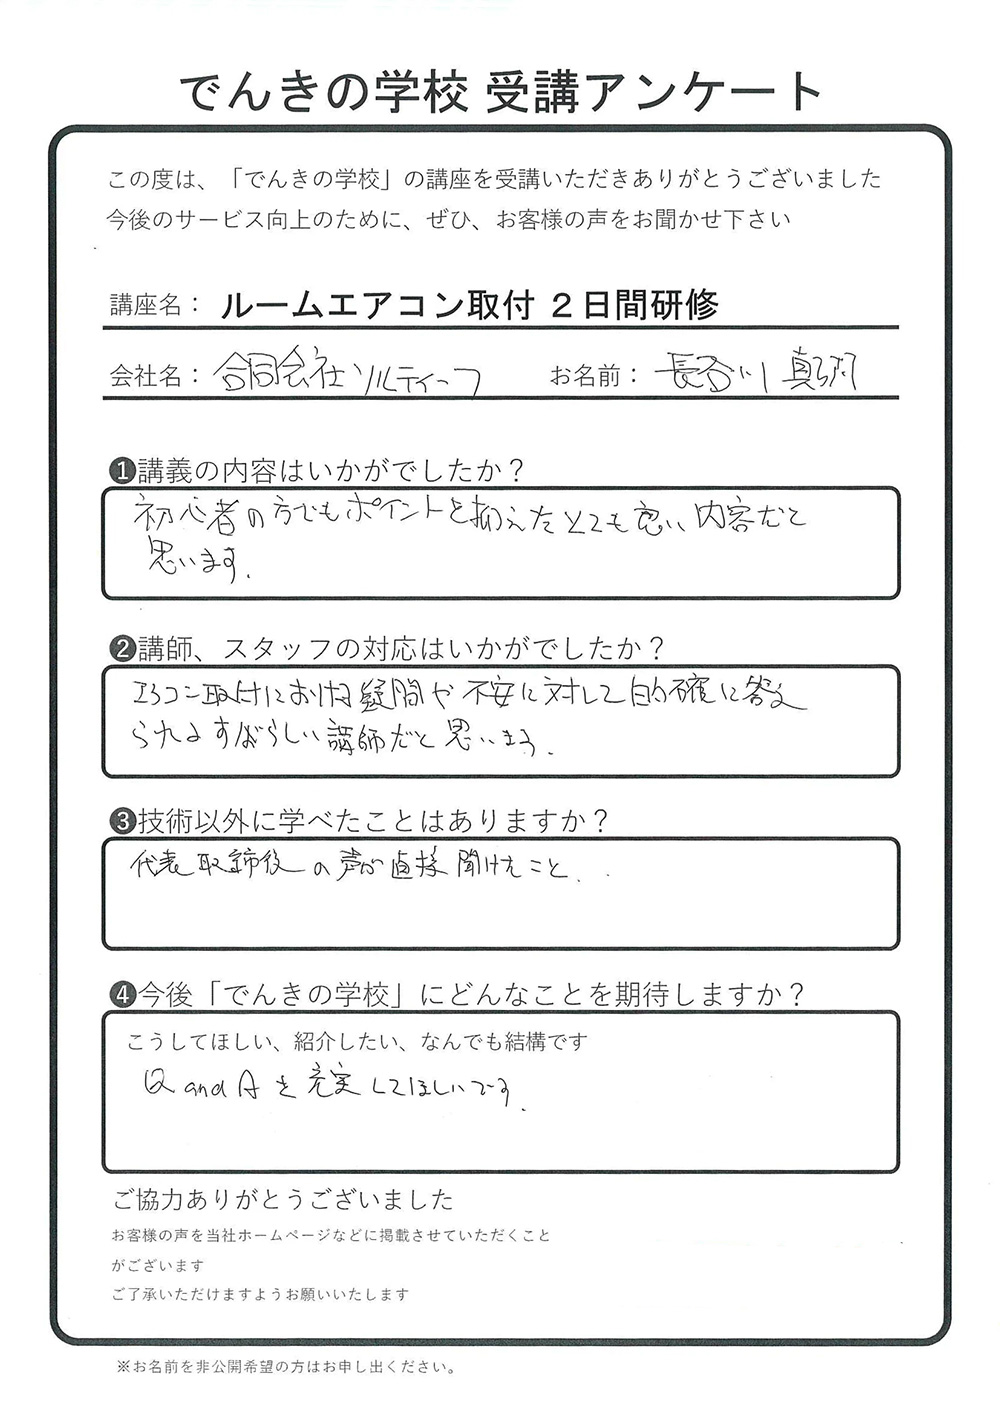 でんきの学校 受講アンケート
この度は、「でんきの学校」の講座を受講いただきありがとうございました
今後のサービス向上のために、ぜひ、お客様の声をお聞かせ下さい
講座名： ルームエアコン取付 ２日間研修
会社名： 合同会社ソルティーフ お名前： 長谷川 真
❶講義の内容はいかがでしたか？
初心者の方でもポイントを抑えたとても良い内容だと
思います.
❷講師、スタッフの対応はいかがでしたか？
エアコン取付における疑問や不安に対して的確に答え
られるすばらしい講師だと思います.
❸技術以外に学べたことはありますか？
代表取締役の声が直接聞けたこと.
❹今後「でんきの学校」にどんなことを期待しますか？
こうしてほしい、紹介したい、なんでも結構です
Q and A を充実してほしいです.
ご協力ありがとうございました
お客様の声を当社ホームページなどに掲載させていただくこと
がございます
ご了承いただけますようお願いいたします
※お名前を非公開希望の方はお申し出ください。